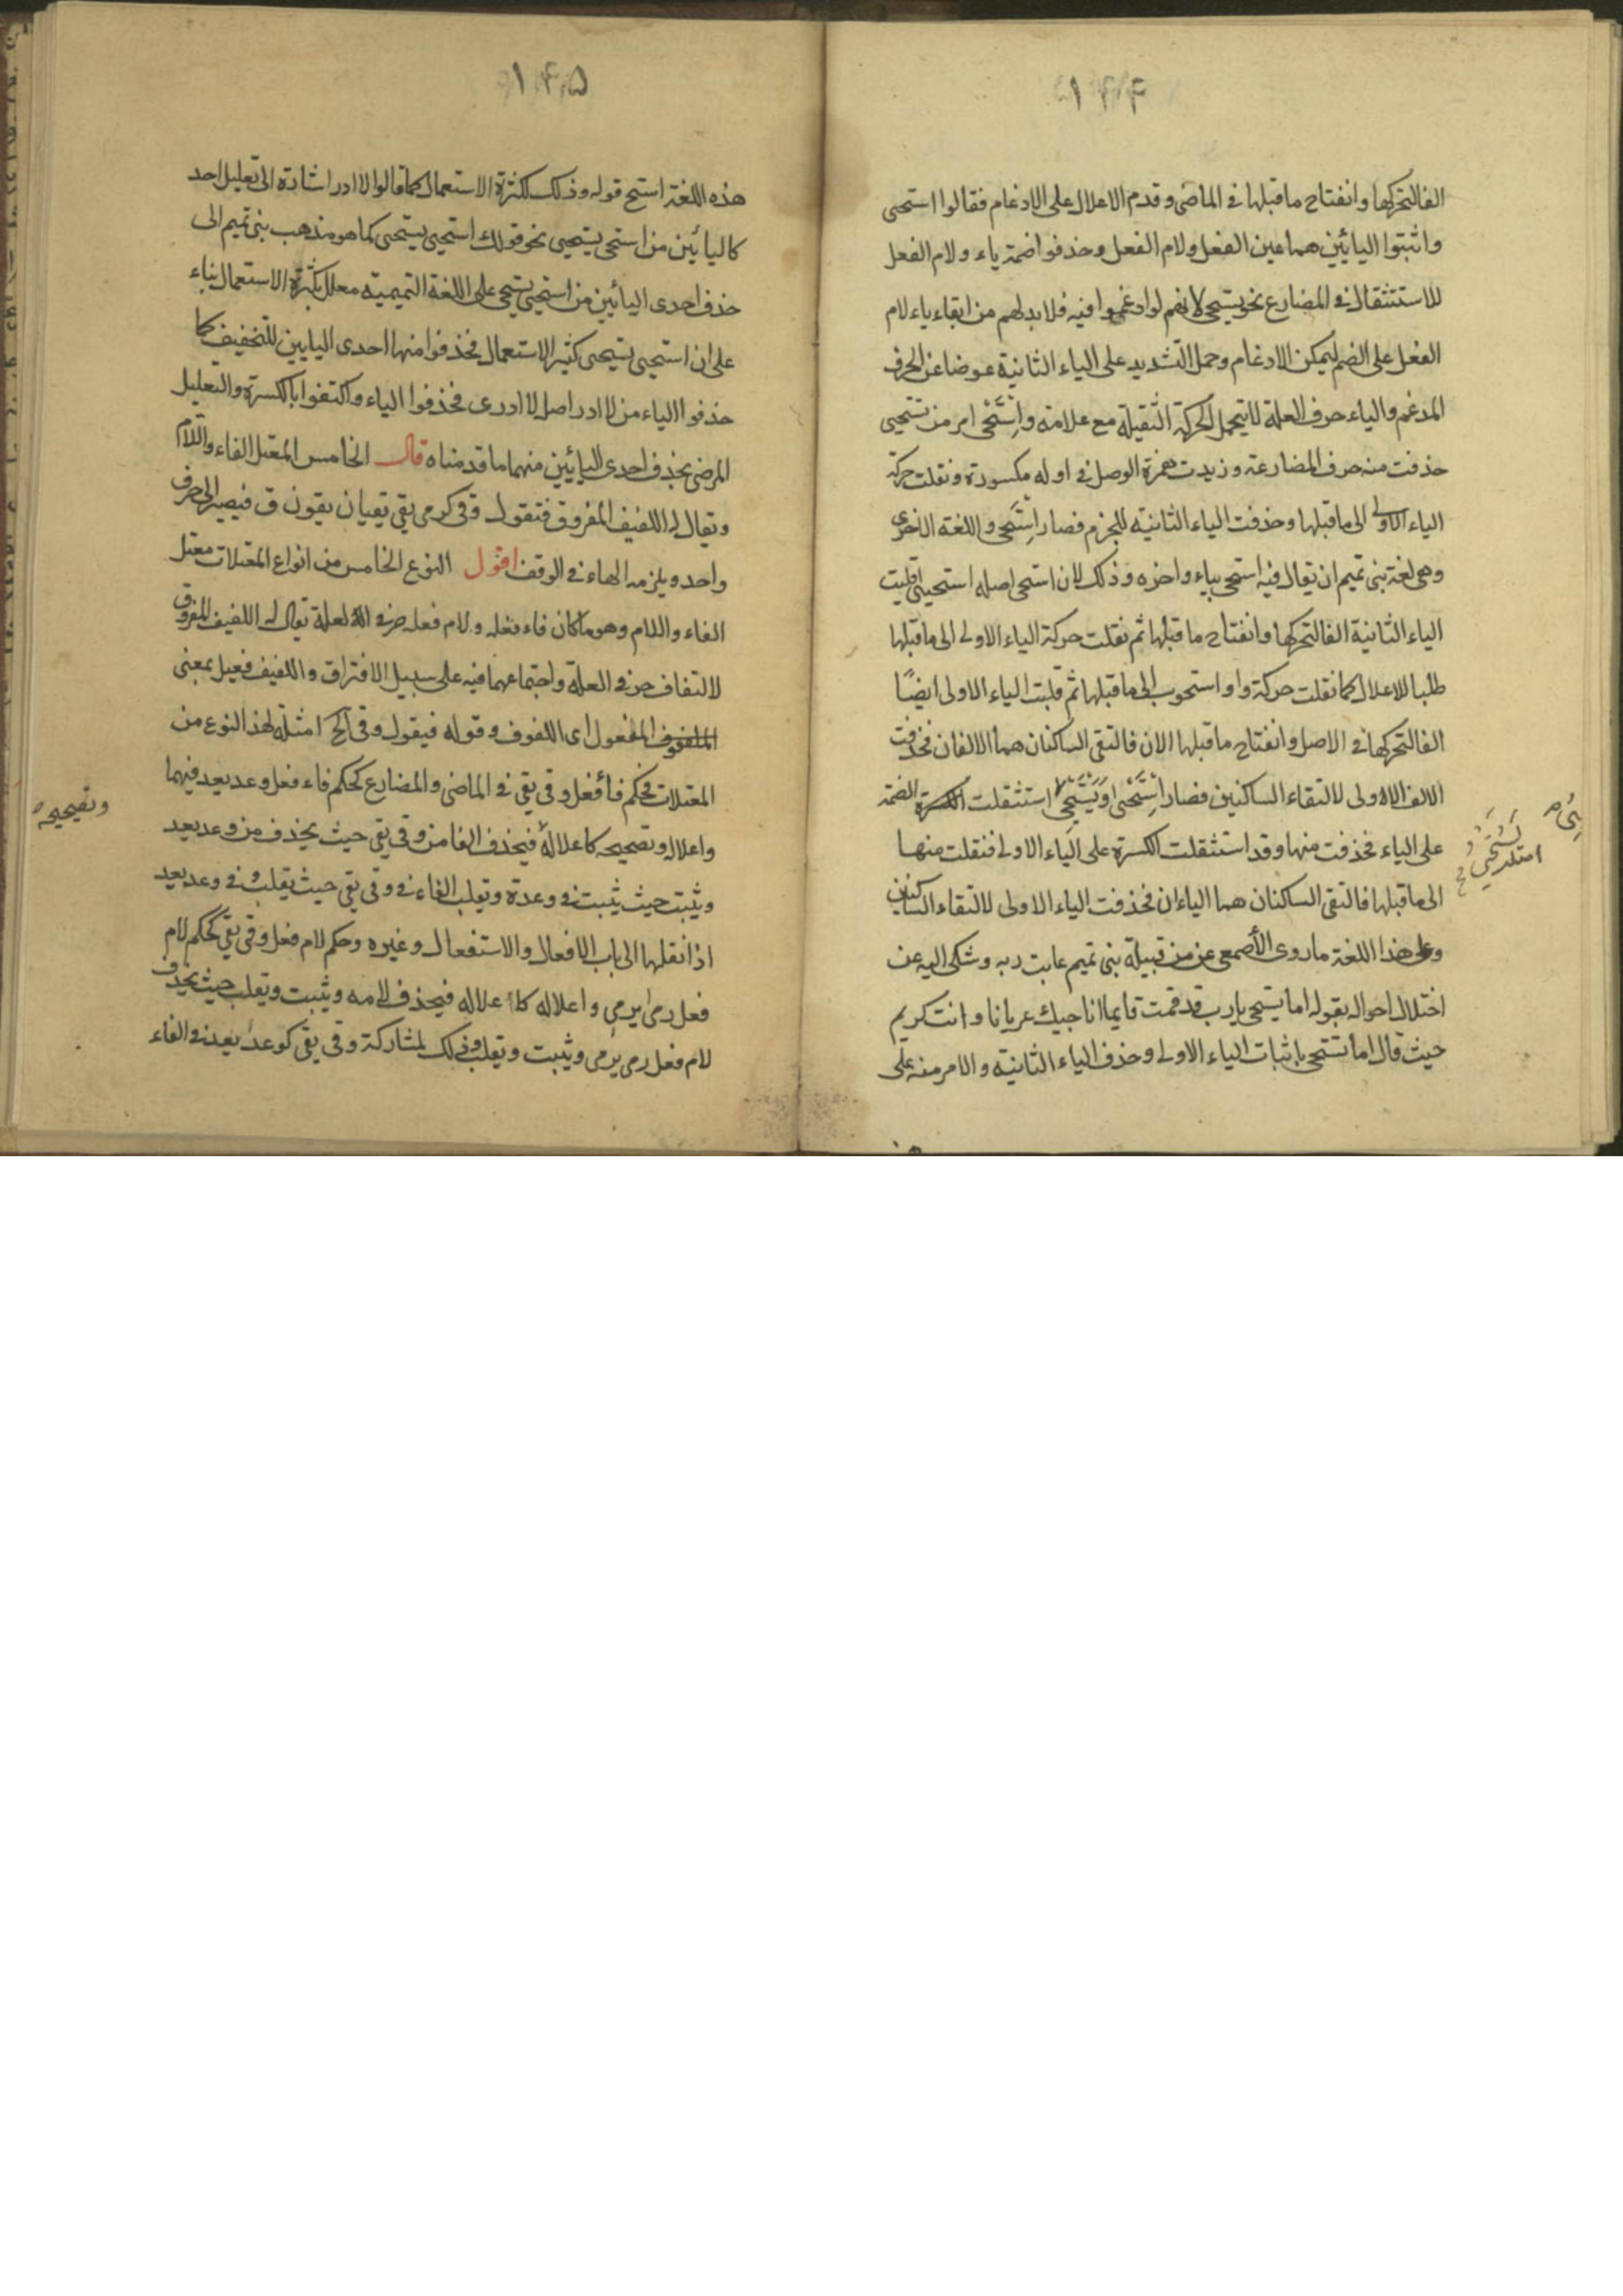 ١٩٤
الفا لتحركها وانفتاح ماقبلها فى الماضى وقدم الاعلال على الادغام فقالوا استحيى
واثبتوا اليائين هما عين الفعل ولام الفعل وحذفوا ضمة ياء ولام الفعل
للاستثقال فى المضارع نحو يستحيى لانهم لوادغموا فيه فلا بد لهم من ابقاء ياء لام
الفعل على الضم ليمكن الادغام وحمل التشديد على الياء الثانية عوضا عن الحرف
المدغم والياء حرف العلة لا يتحمل الحركة الثقيلة مع علامته واِسْتَحْىِ امر من تستحيى
حذفت منه حرف المضارعة وزيدت همزة الوصل فى اوله مكسورة ونقلت حركة
الياء الاولى الى ماقبلها وحذفت الياء الثانية للجزم فصار اِسْتَحى واللغة الاخرى
وهى لغة بنى تميم ان يقال فيه استحى بياء واحزه وذلك لان استحى اصله استحيى قلبت
الياء الثانية الفا لتحركها وانفتاح ماقبلها ثم نقلت حركة الياء الاولى الى ماقبلها
طلبا للاعلال كما نقلت حركة واو استحوب الى ماقبلها ثم قلبت الياء الاولى ايضًا
الفا لتحركها فى الاصل وانفتاح ماقبلها الان فالتقى الساكنان هما الالفان فحذفت
الالف الاولى لالتقاء الساكنين فصار اِسْتَحى ويَسْتَحِى استثقلت الكسرة الضمة
على الياء فحذفت منها وقد استثقلت الكسرة على الياء الاولى فنقلت منها
الى ماقبلها فالتقى الساكنان هما الياءان فحذفت الياء الاولى لالتقاء الساكنين
وعلى هذا اللغة ماروى الأصمعى عن من قبيلة بنى تميم عابت ربه وشكى اليه عن
اختلال احواله بقوله اما يستحى يارب قد قمت قايما اناجيك عريانا وانت كريم
حيث قال اما تستحى باثبات الياء الاولى وحذف الياء الثانية والامر منه على
١٩٥
هذه اللغة استح قوله وذلك لكثرة الاستعمال كما قالوا لاادر اشارة الى تعليل احد
كاليائين من استحى يستحيى نحو قولك استحيى يستحيى كما هو مذهب بنى تميم الى
حذف احدى اليائين من استحيى يستحى على اللغة التميمية معلل بكثرة الاستعمال بناء
على ان استحيى يستحيى كثير الاستعمال فحذفوا منها احدى اليايين للتخفيف كما
حذفوا الياء من لاادر اصل لاادرى فحذفوا الياء واكتفوا باكسرة والتعليل
المرضى بحذف احدى اليائين منهما ما قدمناه قال الخامس المعتل الفاء واللام
ويقال له اللفيف المفروق فتقول وقى كرمى يقى يقيان يقون ق فيصير الى حرف
واحد ويلزمه الهاء فى الوقف اقول النوع الخامس من انواع المعتلات معتل
الفاء واللام وهو ماكان فاء فعله ولام فعله حرفى العلة يقال له اللفيف المفروق
لالتفاف حرفى العلة واجتماعهما فيه على سبيل الافتراق واللفيف فعيل بمعنى
الملفوف المفعول اى اللفوف وقوله فيقول وقى الخ امثلة لهذا النوع من
المعتلات فحكم فأفعل وقى يقى فى الماضى والمضارع كحكم فاء فعل وعد يعد فيهما
واعلاله وتصحيحه كاعلاله فيحذف الفا من وقى يقى حيث يحذف من وعد يعد
وتصحيحه
ويثبت حيث يثبت فى وعدة ويقلب الفاء فى وقى يقى حيث يقلب فى وعد يعد
اذا نقلها الى باب الافعال والاستفعال وغيره وحكم لام فعل وقى يقى كحكم لام
فعل رمى يرمى واعلاله كاعلاله فيحذف لامه ويثبت ويقلب حيث يحذف
لام فعل رمى يرمى ويثبت ويقلب وذلك لمشاركة وقى يقى كوعد يعد فى الفاء